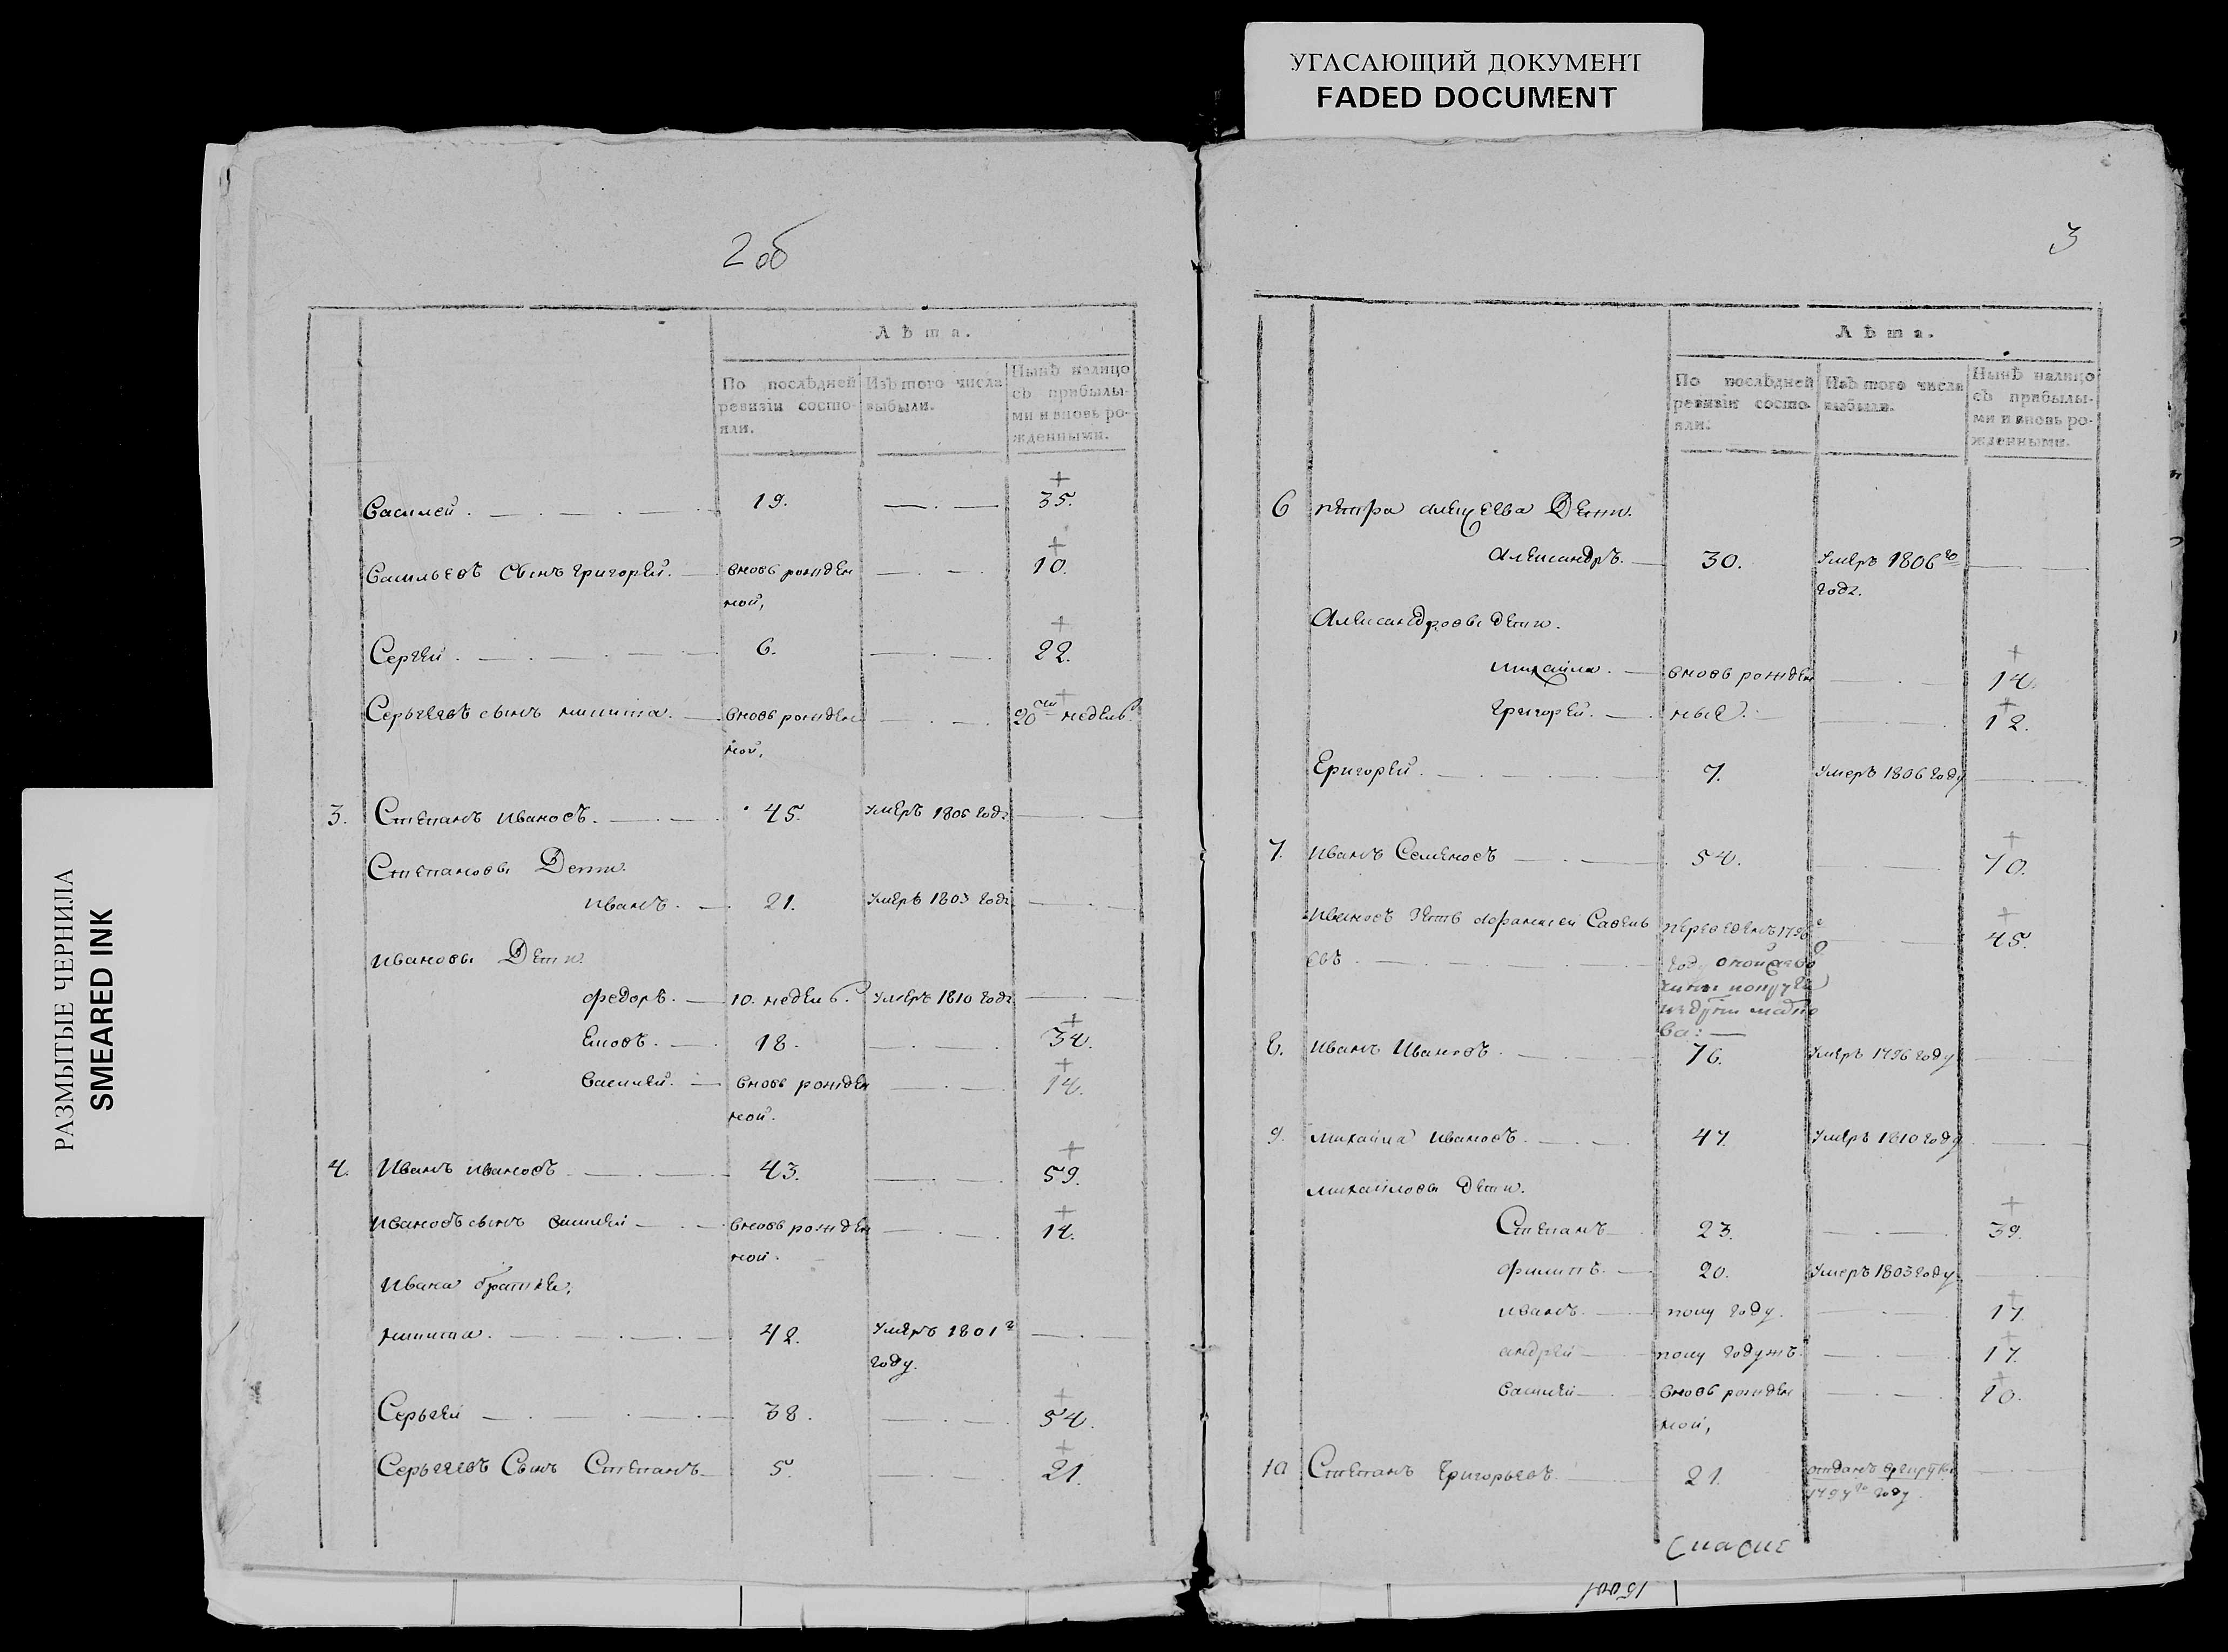 УГАСАЮЩИЙ ДОКУМЕНТ
FADED DOCUMENT
РАЗМЫТЫЕ ЧЕРНИЛА
SMEARED INK
2 об
Лѣта.
По послѣдней ревизіи состояли.
Изъ того числа выбыли.
Нынѣ налицо съ прибылыми и вновь рожденными.
Василей. 19. 35.
Васильевъ сынъ григорей. вновь рожден 10.
ной,
Сергей. 6. 22.
Серьгеевъ сынъ никита. вновь рожден 20 ти недель
ной,
3. Степанъ ивановъ. 45. умеръ 1806 году
Степановы Дети.
иванъ. 21. умеръ 1803 году
ивановы Дети.
федоръ. 10. недель. умеръ 1810 году
18. 34.
василей. вновь рожден 14.
ной.
4. Иванъ ивановъ 43. 59.
ивановъ сынъ василей вновь рожден 14.
ной.
Ивана братья,
никита. 42. умеръ 1801 г
году.
Серьгей 38. 54.
Серьгеевъ Сынъ Степанъ 5. 21.
3
Лѣта.
По послѣдней ревизіи состояли.
Изъ того числа выбыли.
Нынѣ налицо съ прибылыми и вновь рожденными.
6 петра Дети.
Александръ. 30. умеръ 1806 го
году.
Александровы дети.
михайла. вновь рожден 14.
григорей. ные. 12.
Григорей. 7. умеръ 1806 году
7. Иванъ Семеновъ 54. 70.
Ивановъ зять афанасей Савель переведенъ 1796 г 45.
евъ году
8. Иванъ Ивановъ. 76. умеръ 1796 году
9. михайла ивановъ. 47. умеръ 1810 году
михайловы дети.
Степанъ 23. 39.
филипъ. 20. умеръ 1803 году
иванъ. полу году. 17.
андрей полу годужъ. 17.
василей вновь рожден 10.
ной,
10 Степанъ Григорьевъ. 21. отданъ
году